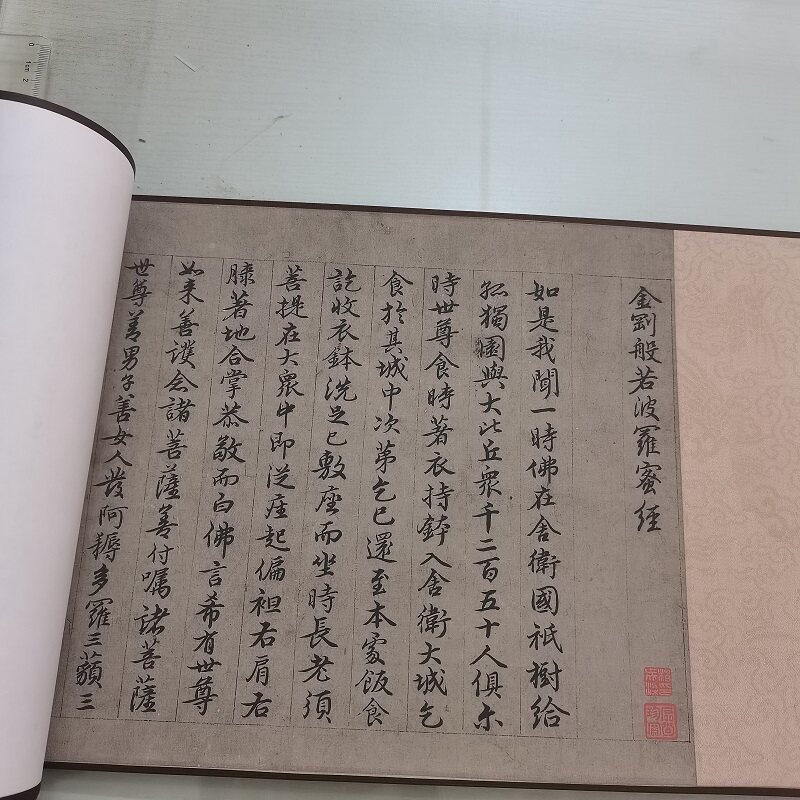 金剛般若波羅蜜經
如是我聞一時佛在舍衛國祇樹給
孤獨園與大比丘眾千二百五十人俱尒
時世尊食時著衣持鉢入舍衛大城乞
食於其城中次第乞已還至本處飯食
訖收衣鉢洗足已敷座而坐時長老須
菩提在大眾中即從座起偏袒右肩右
膝著地合掌恭敬而白佛言希有世尊
如来善護念諸菩薩善付囑諸菩薩
世尊善男子善女人發阿耨多羅三藐三
0 1cm 2